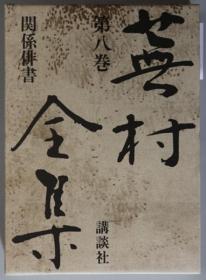 蕪村
全集
第八巻
関係俳書
講談社